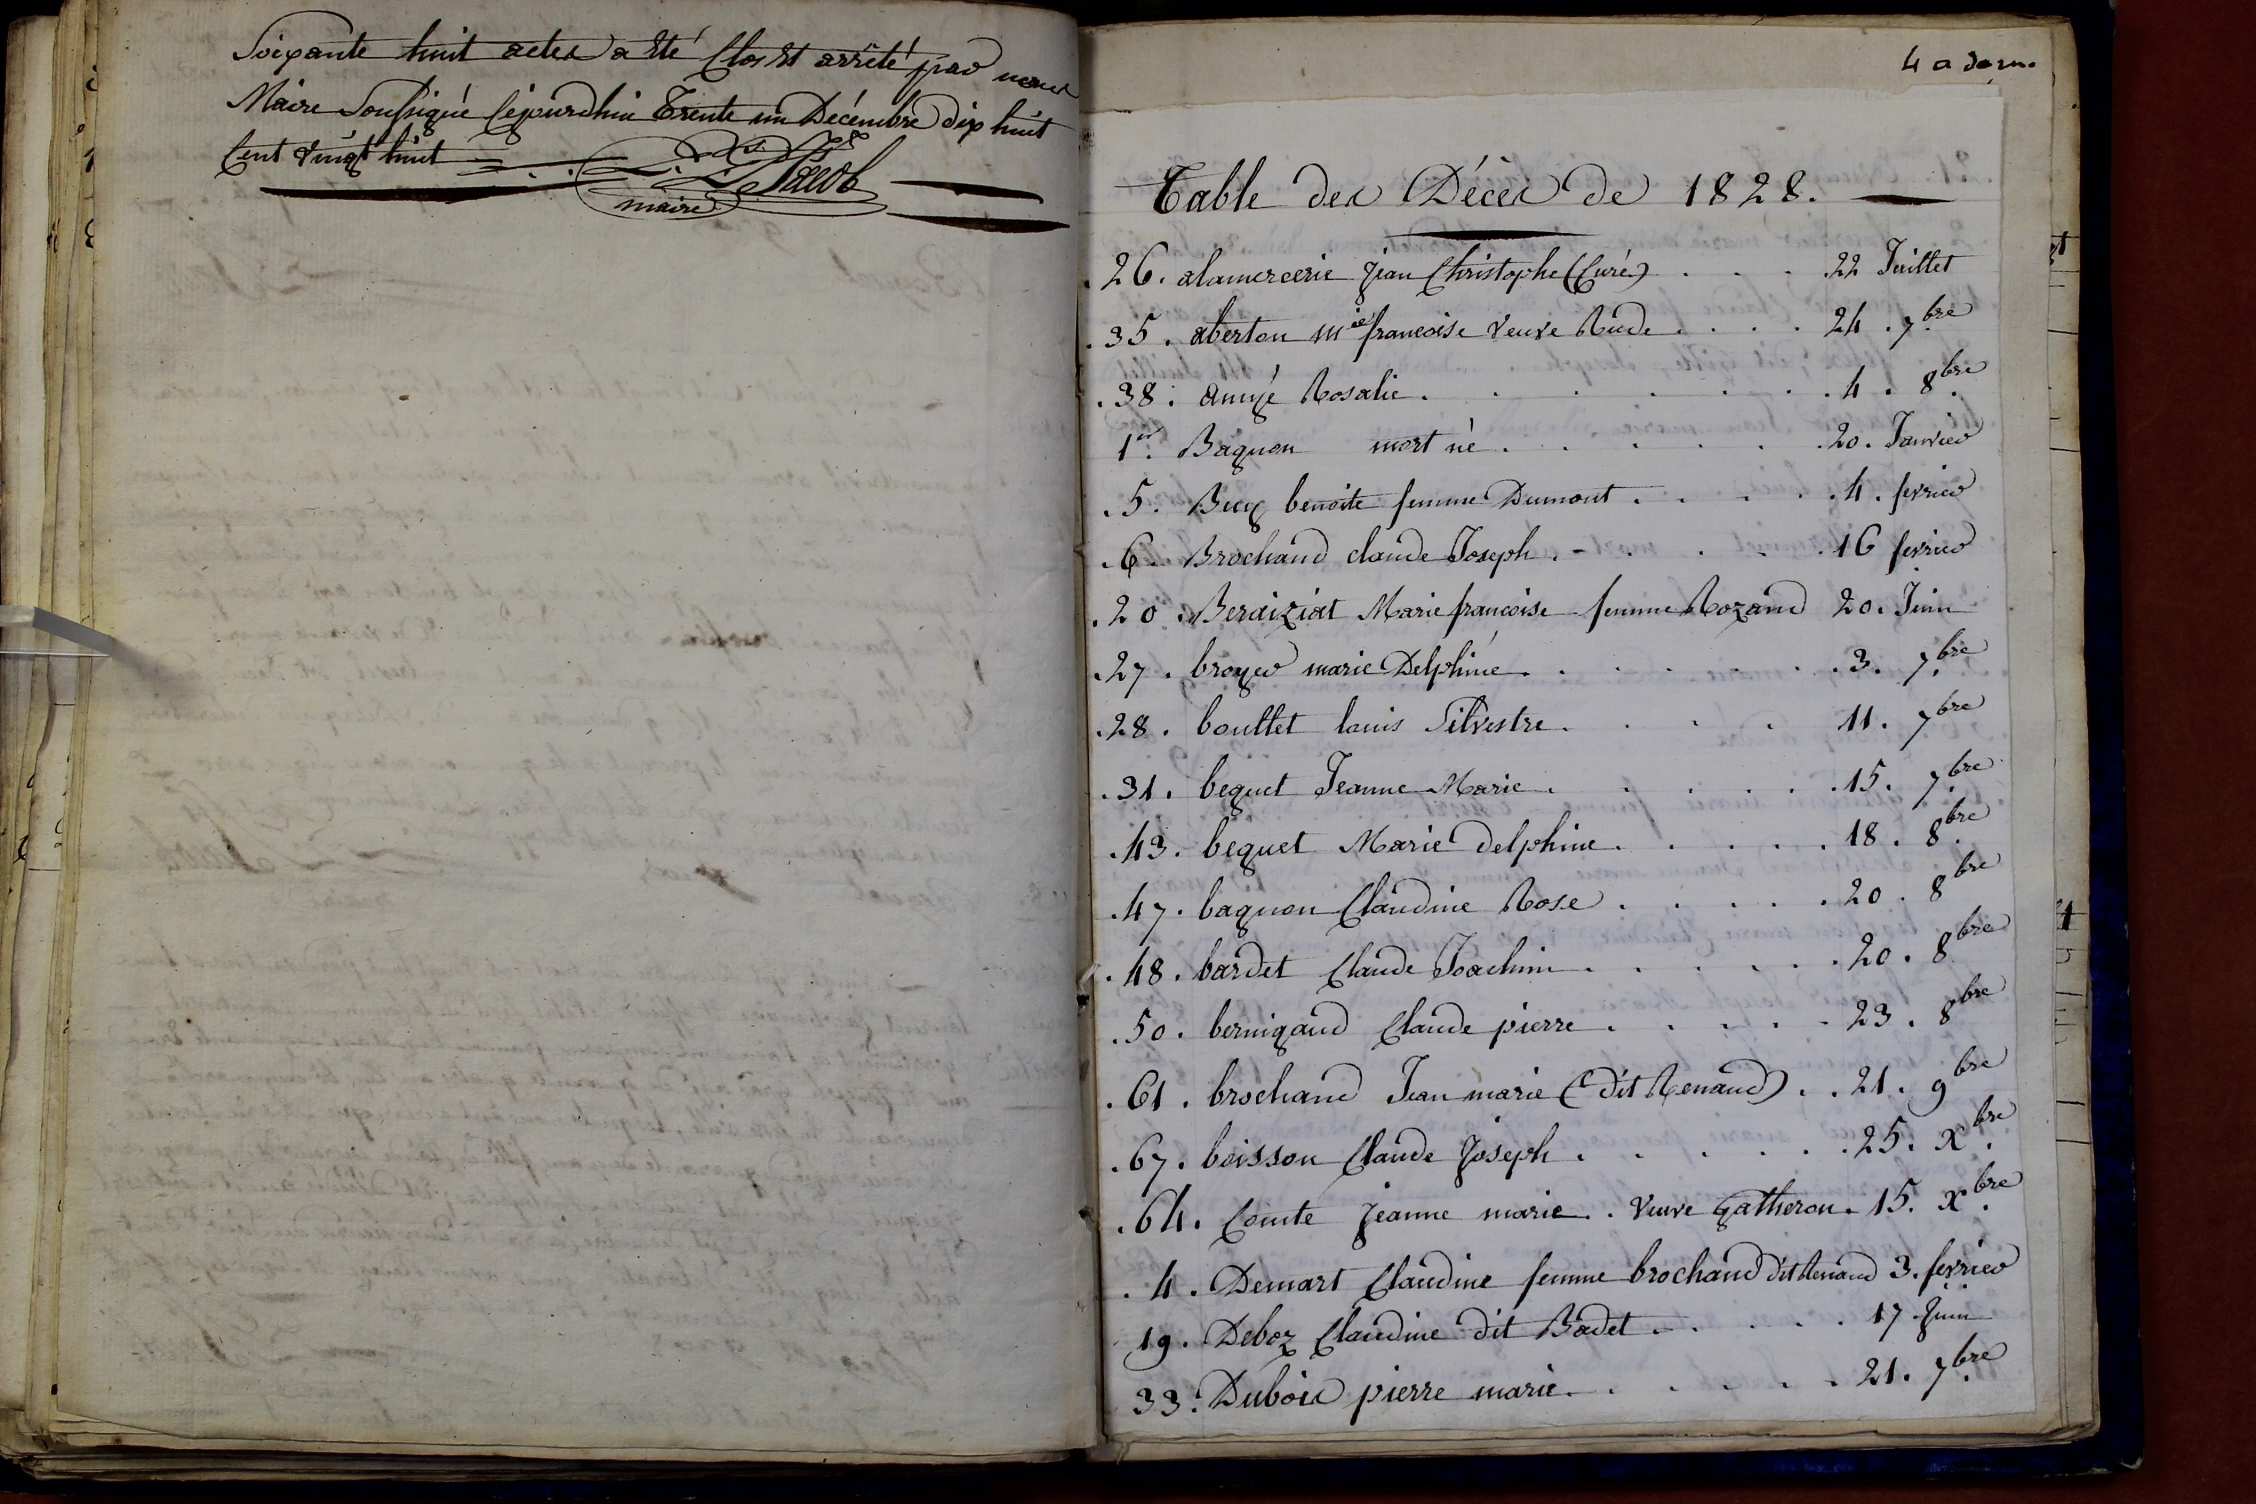 Soixante huit actes a été Clos et arrêté par nous
Maire Soussigné Cejourdhui Trente un Décembre dix huit
Cent vingt huit
Jacob
maire
Table des Décès de 1828.
.26. alamercerie Jean Christophe (Curé) . . . 22 Juillet
.35. aberton mie francoise veuve Rude . . . . 24 . 7bre
.38. amyé Rosalie . . . . . . . 4 . 8bre.
1er. Bagnon mort né . . . . . . 20. Janvier
.5. Bicy benoite femme Dumont . . . . . 4 . fevrier
.6. Brochand claude Joseph . - . . . . 16 fevrier
.20. Beraiziat Marie francoise femme Rozand 20. Juin
.27. broyer marie Delphine . . . . . . . 3. 7bre.
.28. boullet louis Silvestre . . . . 11. 7bre
.31. bequet Jeanne Marie . . . . . . 15. 7bre.
.43. bequet Marie delphine . . . . . 18. 8bre.
.47. bagnon Claudine Rose . . . . . 20. 8bre
.48. bardet Claude Joachim . . . . . . 20. 8bre
.50. bernigaud Claude pierre . . . . . 23. 8bre
.61. brochand Jean marie (dit Renaud) . . 21. 9bre
.67. boisson Claude Joseph . . . . . . 25. Xbre.
.64. Comte Jeanne marie . . veuve Gatheron. 15. Xbre.
.4. Demart Claudine femme brochand dit Renaud 3. fevrier
19. Deboz Claudine dit Badet . . . . . 17 Juin
33. Dubois pierre marie . . . . . . 21. 7bre.